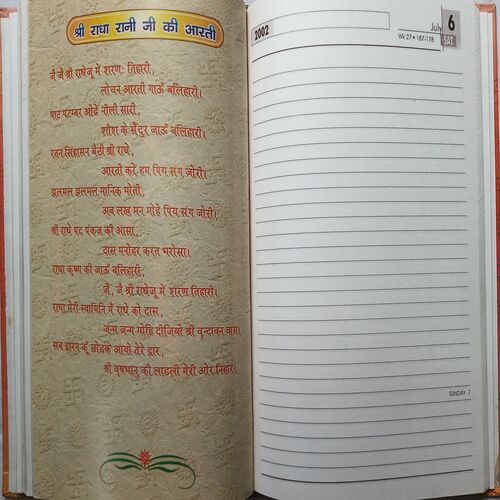 श्री राधा रानी जी की आरती
जै जै श्री राधेजू मैं शरण: तिहारी,
लोचन आरती गाऊँ बलिहारी।
पाट पटम्बर ओढ़ें नीली सारी,
शीश के सेंदुर जाऊँ बलिहारी।
रतन सिंहासन बैठी श्री राधे,
आरती करें हम पिय संग जोरी।
झलमल झलमल मानिक मोती,
अब लख मन मोहे पिय संग जोरी।
श्री राधे पद पंकज की आसा,
दास मनोहर करत भरोसा।
राधा कृष्ण की जाऊँ बलिहारी,
जै, जै श्री राधेजू मैं शरण तिहारी।
राधा मेरी स्वामिनि मैं राधे को दास,
जन्म जन्म मोहि दीजियों श्री वृन्दावन वास।
सब द्वारन कूं छोडके आयो तेरे द्वार,
श्री वृषभानु की लाडली मेरी ओर निहार।
2002
July
6
Wk 27 • 187-178
SAT
SUNDAY 7